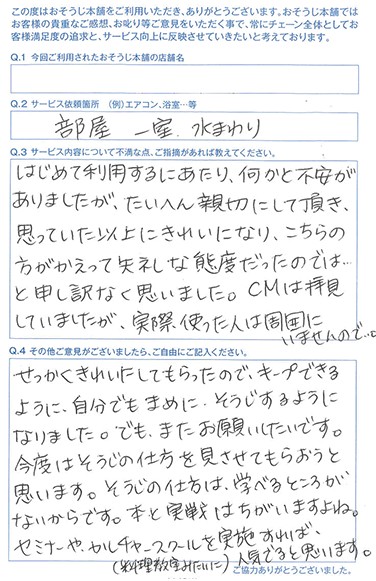 この度はおそうじ本舗をご利用いただき、ありがとうございます。おそうじ本舗では
お客様の貴重なご感想、お叱り等ご意見をいただく事で、常にチェーン全体としてお
客様満足度の追求と、サービス向上に反映させていきたいと考えております。
Q.1 今回ご利用されたおそうじ本舗の店舗名
Q.2 サービス依頼箇所 (例)エアコン、浴室…等
部屋 一室、水まわり
Q.3 サービス内容について不満な点、ご指摘があれば教えてください。
はじめて利用するにあたり、何かと不安が
ありましたが、たいへん親切にして頂き、
思っていた以上にきれいになり、こちらの
方がかえって失礼な態度だったのでは…
と申し訳なく思いました。CMは拝見
していましたが、実際使った人は周囲に
いませんので…。
Q.4 その他ご意見がございましたら、ご自由にご記入ください。
せっかくきれいにしてもらったので、キープできる
ように、自分でもまめに、そうじするように
なりました。でも、またお願いしたいです。
今度はそうじの仕方を見させてもらおうと
思います。そうじの仕方は、学べるところが
ないからです。本と実戦はちがいますよね。
セミナーや、カルチャースクールを実施すれば、
(料理教室みたいに) 人気でると思います。
ご協力ありがとうございました。